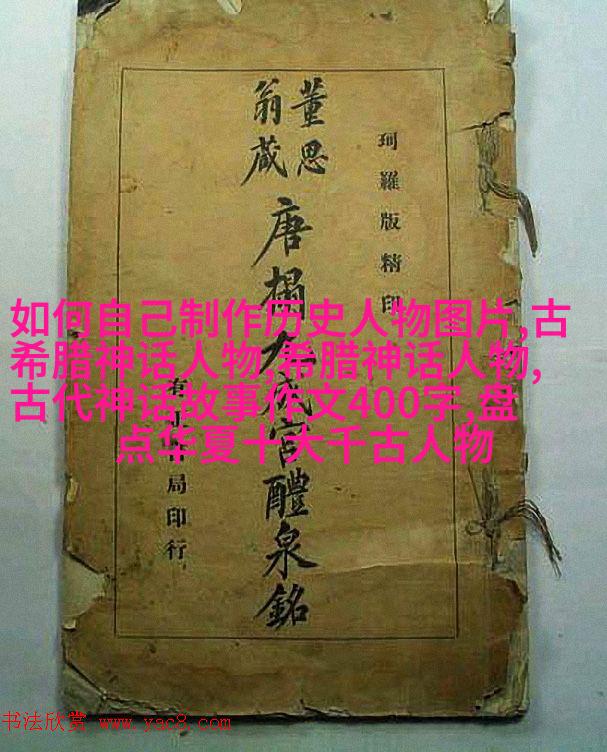 珂羅版精印
董思
翁藏
唐搨九成宫醴泉銘
局印行
如何自己制作历史人物图片,古
希腊神话人物,希腊神话人物,
古代神话故事作文400字,盘
点华夏十大千古人物
书法欣赏 www.yac8.com